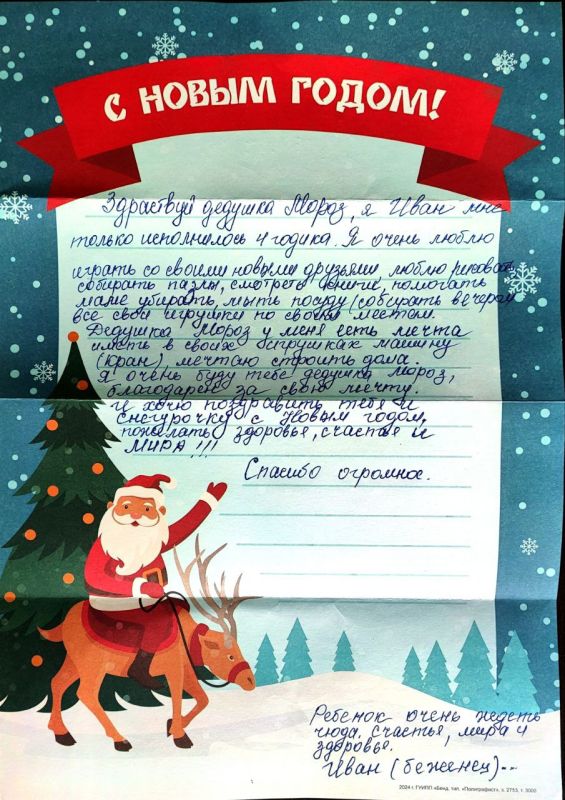 С НОВЫМ ГОДОМ!
Здраствуй дедушка Мороз, я Иван мне
только исполнилось 4 годика. Я очень люблю
играть со своими новыми друзьями, люблю рисовать
собирать пазлы, смотреть книги, помогать
маме убирать, мыть посуду, собирать вечером
все свои игрушки по своим местам.
Дедушка Мороз у меня есть мечта
иметь в своих игрушках машину
(кран) мечтаю строить дома.
Я очень буду тебе дедушка Мороз,
благодарен за свою мечту.
И хочю поздравить тебя и
Снегурочку с Новым годом,
пожелать здоровья, счастья и
МИРА!!!
Спасибо огромное.
Ребенок очень ждеть
чюда. Счастье, мира и
здоровье.
Иван (беженец)...
2024 г. ГУИПП «Бенд. тип. «Полиграфист», з. 2753, т. 3000